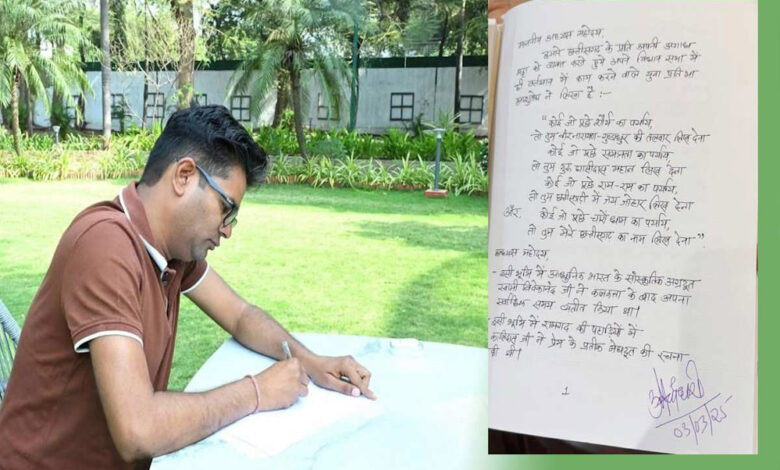 माननीय अध्यक्ष महोदय,
हमारे छत्तीसगढ़ के प्रति अपनी अगाध
श्रद्धा को व्यक्त करते हुये अपने विधान सभा में
ही वर्तमान में काम करने वाले युवा प्रतिभा
ने लिखा है :-
"कोई जो पूछे शौर्य का पर्याय,
तो तुम वीरनारायण-गुण्डाधुर की तलवार लिख देना
कोई जो पूछे समानता का पर्याय,
तो तुम गुरू घासीदास महान लिख देना
कोई जो पूछे राम-राम का पर्याय,
तो तुम छत्तीसगढ़ी में जय जोहार लिख देना
और कोई जो पूछे चारों धाम का पर्याय,
तो तुम मेरे छत्तीसगढ़ का नाम लिख देना"
अध्यक्ष महोदय,
- इसी भूमि में आधुनिक भारत के सांस्कृतिक अग्रदूत
स्वामी विवेकानंद जी ने कलकत्ता के बाद अपना
सर्वाधिक समय व्यतीत किया था।
इसी भूमि में रामगढ़ की पहाड़ियों में
कालिदास जी ने प्रेम के प्रतीक मेघदूत की रचना
की थी।
1
03/03/25